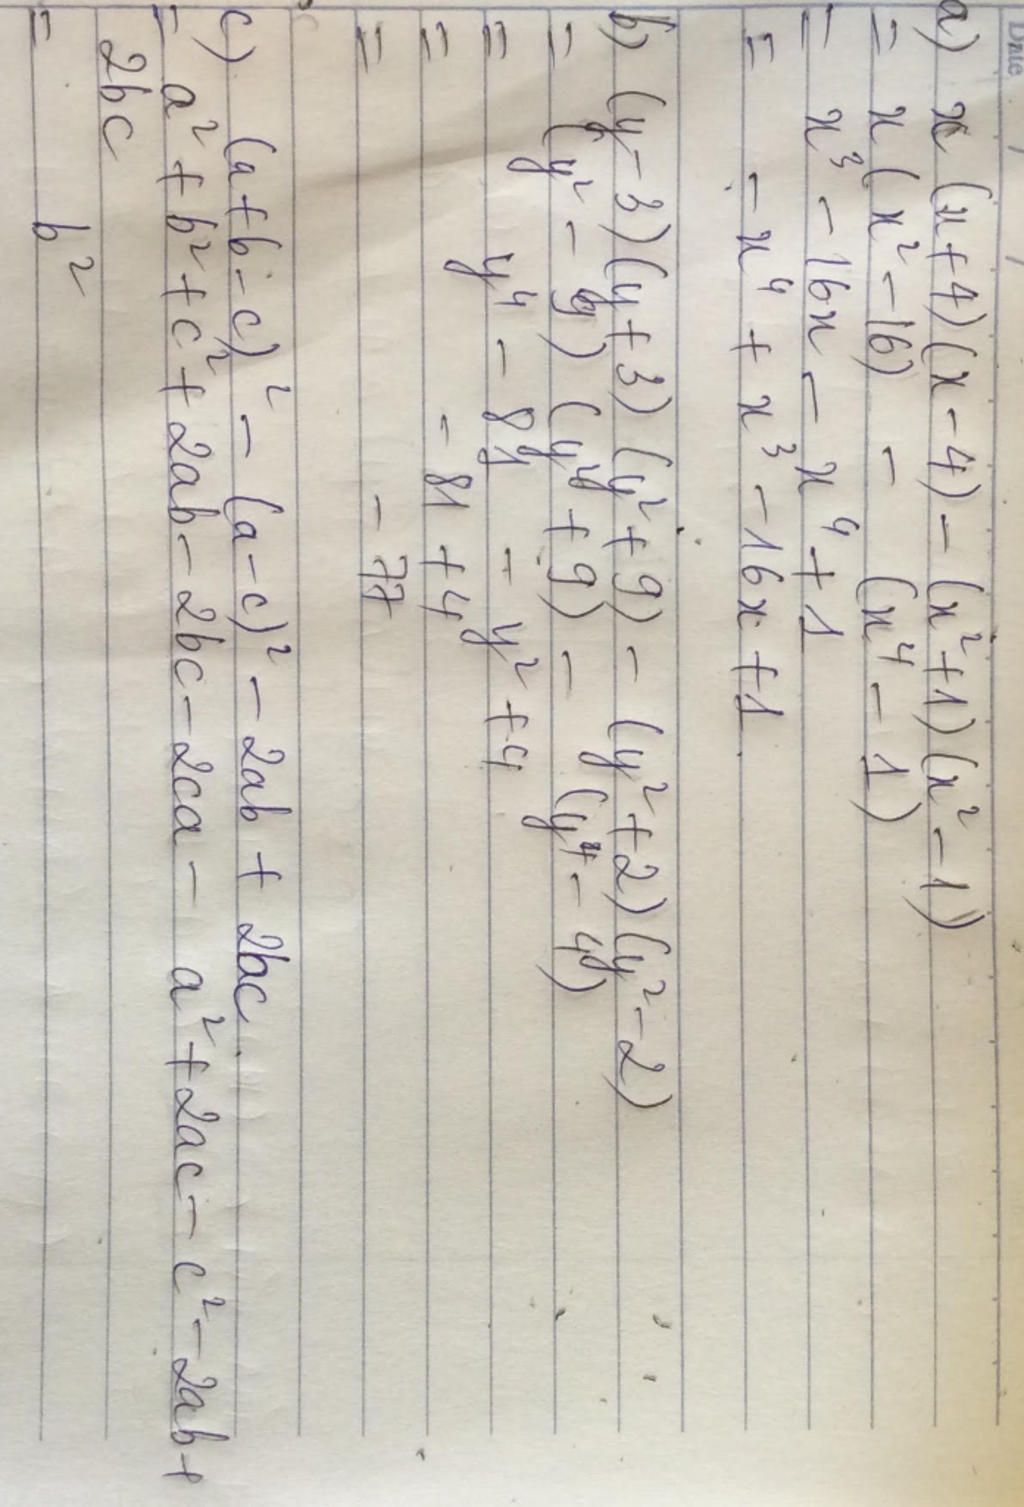 Date
a) x(x+4)(x-4) - (x²+1)(x²-1)
= x(x²-16) - (x⁴-1)
= x³ - 16x - x⁴ + 1
= - x⁴ + x³ - 16x + 1.
b) (y-3)(y+3)(y²+9) - (y²+2)(y²-2)
= (y² - 9)(y²+9) - (y⁴ - 4)
= y⁴ - 81 - y² + 4
= - 81 + 4
= - 77
c) (a+b-c)² - (a-c)² - 2ab + 2bc.
= a² + b² + c² + 2ab - 2bc - 2ca - a² + 2ac - c² - 2ab +
2bc
= b²